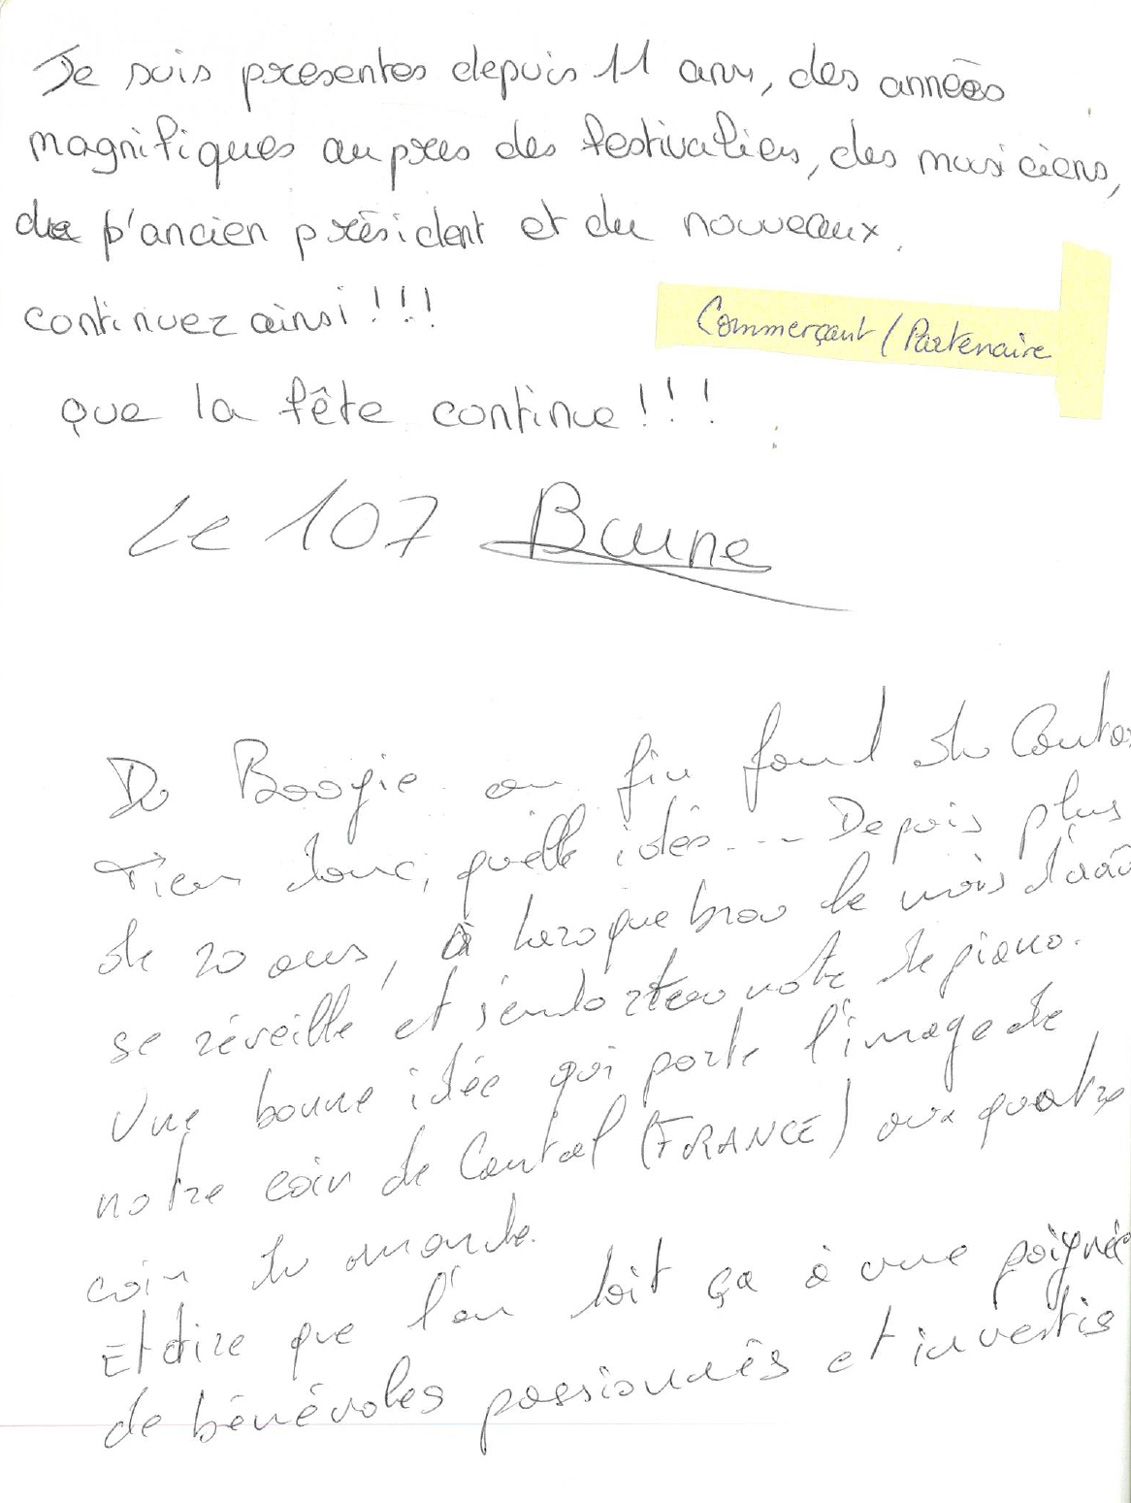 Je suis presentes depuis 11 ans, des années
magnifiques aupres des festivaliers, des musiciens,
de l'ancien président et du nouveaux.
continuez ainsi !!!
Commerçant / Partenaire
que la fête continue !!!
Le 107
Du Boogie au fin fond du Cantal
Tiens donc, quelle idée... Depuis plus
de 20 ans, à Laroquebrou le mois d'aoû
se réveille et s'endort au notes de piano.
Une bonne idée qui porte l'image de
notre coin de Cantal (FRANCE) aux quatre
coin du monde.
Et dire que l'on doit ça à une poignée
de bénévoles passionnés et investis